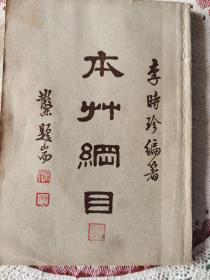 李時珍編著
本艸綱目